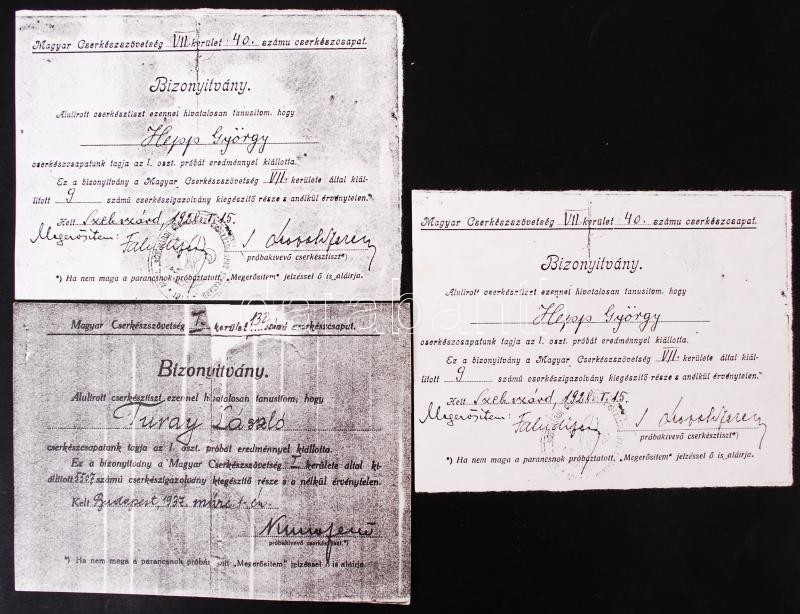 Magyar Cserkészszövetség VII. kerület 40. számu cserkészcsapat.
Bizonyitvány.
Alulirott cserkésztiszt ezennel hivatalosan tanusitom, hogy
Hepp György
cserkészcsapatunk tagja az I. oszt. próbát eredménnyel kiállotta.
Ez a bizonyitvány a Magyar Cserkészszövetség VII. kerülete által kiál-
litott 9 számú cserkészigazolvány kiegészitő része s anélkül érvénytelen.
Kelt Szekszárd, 1928. I. 15.
Megerősitem:
próbakivevő cserkésztiszt*)
*) Ha nem maga a parancsnok próbáztatott, „Megerősitem" jelzéssel ő is aláirja.
Magyar Cserkészszövetség I. kerület 132 számú cserkészcsapat.
Bizonyitvány.
Alulirott cserkésztiszt ezennel hivatalosan tanusitom, hogy
Turay László
cserkészcsapatank tagja az I. oszt. próbát eredménnyel kiállotta.
Ez a bizonyitvány a Magyar Cserkészszövetség I. kerülete által ki-
állitott számú cserkészigazolvány kiegészitő része s a nélkül érvénytelen.
Kelt Budapest, 1937.
próbakivevő cserkésztiszt.*)
*) Ha nem maga a parancsnok próbáz ott „Megerősitem" jelzéssel ő is aláirja.
Magyar Cserkészszövetség VII. kerület 40. számu cserkészcsapat.
Bizonyitvány.
Alulirott cserkésztiszt ezennel hivatalosan tanusitom, hogy
Hepp György
cserkészcsapatunk tagja az I. oszt. próbát eredménnyel kiállotta.
Ez a bizonyitvány a Magyar Cserkészszövetség VII. kerülete által kiál-
litott 9 számú cserkészigazolvány kiegészitő része s anélkül érvénytelen.
Kelt Szekszárd, 1928. I. 15.
Megerősitem:
próbakivevő cserkésztiszt*)
*) Ha nem maga a parancsnok próbáztatott, „Megerősitem" jelzéssel ő is aláirja.